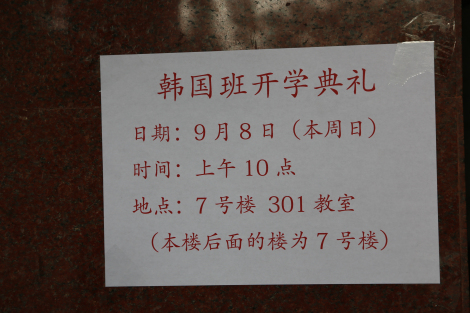 韩国班开学典礼
日期：9月8日（本周日）
时间：上午10点
地点：7号楼 301教室
（本楼后面的楼为7号楼）